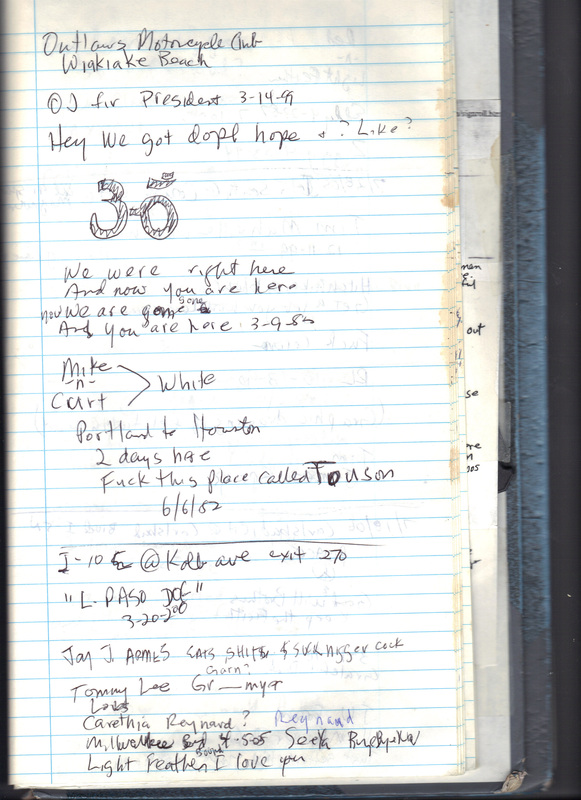 Outlaws Motorcycle Club
Wigklake Beach
OJ fir President 3-14-9
Hey We got dope hope + ? Like?
3-0
We were right here
And now you are here
now We are gone
And you are here. 3-9-85
Mike
-n-
Curt
White
Portland to Houston
2 days here
Fuck this place called Touson
6/6/82
I-10 @ Kolb ave exit 270
"L-PASO
3-20-
Jay J. ARMES EATS SHIT & SUCK nigger cock
Garn?
Tommy Lee Gr__myer
Carethia Reynard? Reynard
4-505 Seeta
Light Feather I love you